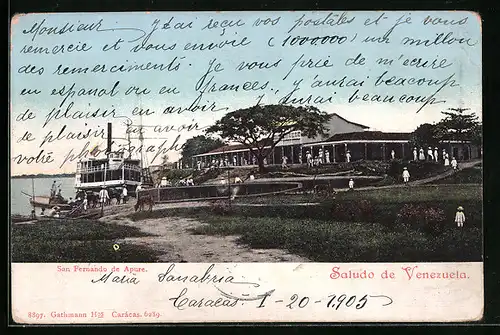 Monsieur J'ai reçu vos postales et je vous
remercie et vous envoie (1000.000) un millon
des remerciments. Je vous prie de m'ecrire
en español ou en français, j'aurai beaucoup
de plaisir en avoir j'aurai beaucoup
de plaisir en avoir
votre photographie
San Fernando de Apure.
Saludo de Venezuela.
Maria Sanabria
Caracas 1-20-1905
8897. Gathmann Hos Carácas. 6289.